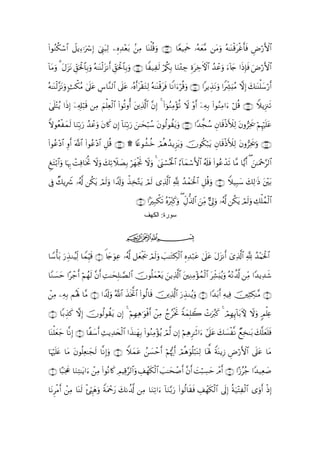 ٱلْأَرْضِ فَأَغْرَقْنَٰهُ وَمَن مَّعَهُۥ جَمِيعًا ۝ وَقُلْنَا مِنۢ بَعْدِهِۦ لِبَنِىٓ إِسْرَٰٓءِيلَ ٱسْكُنُوا۟
ٱلْأَرْضَ فَإِذَا جَآءَ وَعْدُ ٱلْءَاخِرَةِ جِئْنَا بِكُمْ لَفِيفًا ۝ وَبِٱلْحَقِّ أَنزَلْنَٰهُ وَبِٱلْحَقِّ نَزَلَ ۗ وَمَآ
أَرْسَلْنَٰكَ إِلَّا مُبَشِّرًا وَنَذِيرًا ۝ وَقُرْءَانًا فَرَقْنَٰهُ لِتَقْرَأَهُۥ عَلَى ٱلنَّاسِ عَلَىٰ مُكْثٍ وَنَزَّلْنَٰهُ
تَنزِيلًا ۝ قُلْ ءَامِنُوا۟ بِهِۦٓ أَوْ لَا تُؤْمِنُوٓا۟ ۚ إِنَّ ٱلَّذِينَ أُوتُوا۟ ٱلْعِلْمَ مِن قَبْلِهِۦٓ إِذَا يُتْلَىٰ
عَلَيْهِمْ يَخِرُّونَ لِلْأَذْقَانِ سُجَّدًا ۝ وَيَقُولُونَ سُبْحَٰنَ رَبِّنَآ إِن كَانَ وَعْدُ رَبِّنَا لَمَفْعُولًا
۝ وَيَخِرُّونَ لِلْأَذْقَانِ يَبْكُونَ وَيَزِيدُهُمْ خُشُوعًا ۩ ۝ قُلِ ٱدْعُوا۟ ٱللَّهَ أَوِ ٱدْعُوا۟
ٱلرَّحْمَٰنَ ۖ أَيًّا مَّا تَدْعُوا۟ فَلَهُ ٱلْأَسْمَآءُ ٱلْحُسْنَىٰ ۚ وَلَا تَجْهَرْ بِصَلَاتِكَ وَلَا تُخَافِتْ بِهَا وَٱبْتَغِ
بَيْنَ ذَٰلِكَ سَبِيلًا ۝ وَقُلِ ٱلْحَمْدُ لِلَّهِ ٱلَّذِى لَمْ يَتَّخِذْ وَلَدًا وَلَمْ يَكُن لَّهُۥ شَرِيكٌ فِى
ٱلْمُلْكِ وَلَمْ يَكُن لَّهُۥ وَلِىٌّ مِّنَ ٱلذُّلِّ ۖ وَكَبِّرْهُ تَكْبِيرًۢا ۝
سورة: الكهف
ٱلْحَمْدُ لِلَّهِ ٱلَّذِىٓ أَنزَلَ عَلَىٰ عَبْدِهِ ٱلْكِتَٰبَ وَلَمْ يَجْعَل لَّهُۥ عِوَجَا ۜ ۝ قَيِّمًا لِّيُنذِرَ بَأْسًا
شَدِيدًا مِّن لَّدُنْهُ وَيُبَشِّرَ ٱلْمُؤْمِنِينَ ٱلَّذِينَ يَعْمَلُونَ ٱلصَّٰلِحَٰتِ أَنَّ لَهُمْ أَجْرًا حَسَنًا
۝ مَّٰكِثِينَ فِيهِ أَبَدًا ۝ وَيُنذِرَ ٱلَّذِينَ قَالُوا۟ ٱتَّخَذَ ٱللَّهُ وَلَدًا ۝ مَّا لَهُم بِهِۦ مِنْ
عِلْمٍ وَلَا لِءَابَآئِهِمْ ۚ كَبُرَتْ كَلِمَةً تَخْرُجُ مِنْ أَفْوَٰهِهِمْ ۚ إِن يَقُولُونَ إِلَّا كَذِبًا ۝
فَلَعَلَّكَ بَٰخِعٌ نَّفْسَكَ عَلَىٰٓ ءَاثَٰرِهِمْ إِن لَّمْ يُؤْمِنُوا۟ بِهَٰذَا ٱلْحَدِيثِ أَسَفًا ۝ إِنَّا جَعَلْنَا
مَا عَلَى ٱلْأَرْضِ زِينَةً لَّهَا لِنَبْلُوَهُمْ أَيُّهُمْ أَحْسَنُ عَمَلًا ۝ وَإِنَّا لَجَٰعِلُونَ مَا عَلَيْهَا
صَعِيدًا جُرُزًا ۝ أَمْ حَسِبْتَ أَنَّ أَصْحَٰبَ ٱلْكَهْفِ وَٱلرَّقِيمِ كَانُوا۟ مِنْ ءَايَٰتِنَا عَجَبًا ۝
إِذْ أَوَى ٱلْفِتْيَةُ إِلَى ٱلْكَهْفِ فَقَالُوا۟ رَبَّنَآ ءَاتِنَا مِن لَّدُنكَ رَحْمَةً وَهَيِّئْ لَنَا مِنْ أَمْرِنَا